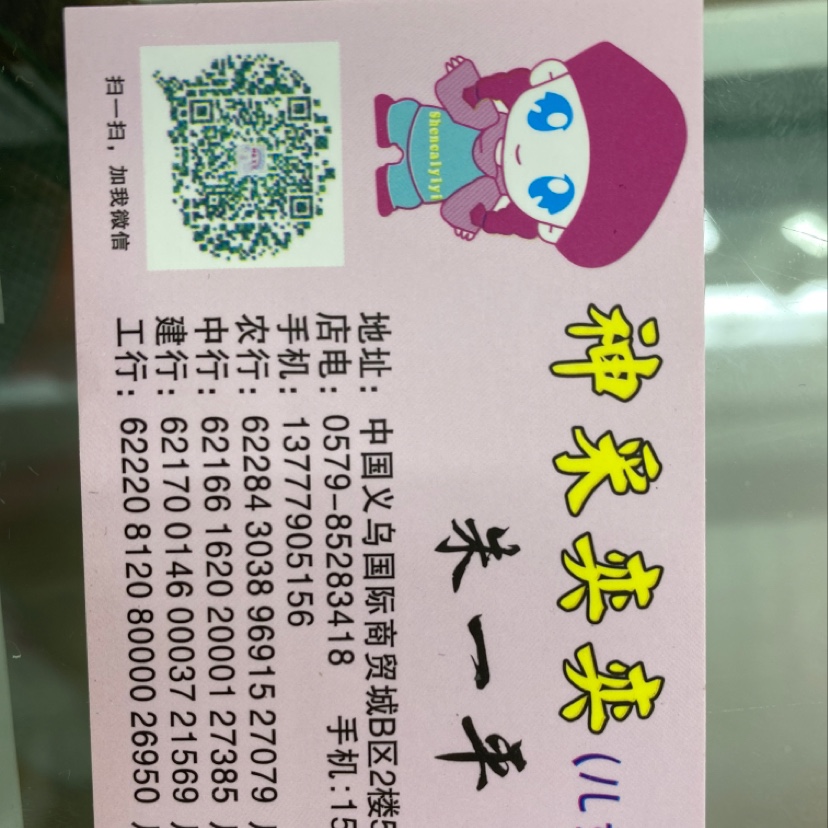 神采奕奕(儿
朱一平
Shencaiyiyi
地址：中国义乌国际商贸城B区2楼5
店电：0579-85283418 手机:15
手机：13777905156
农行：62284 3038 96915 27079
中行：62166 1620 20001 27385
建行：62170 0146 00037 21569
工行：62220 8120 80000 26950
扫一扫，加我微信